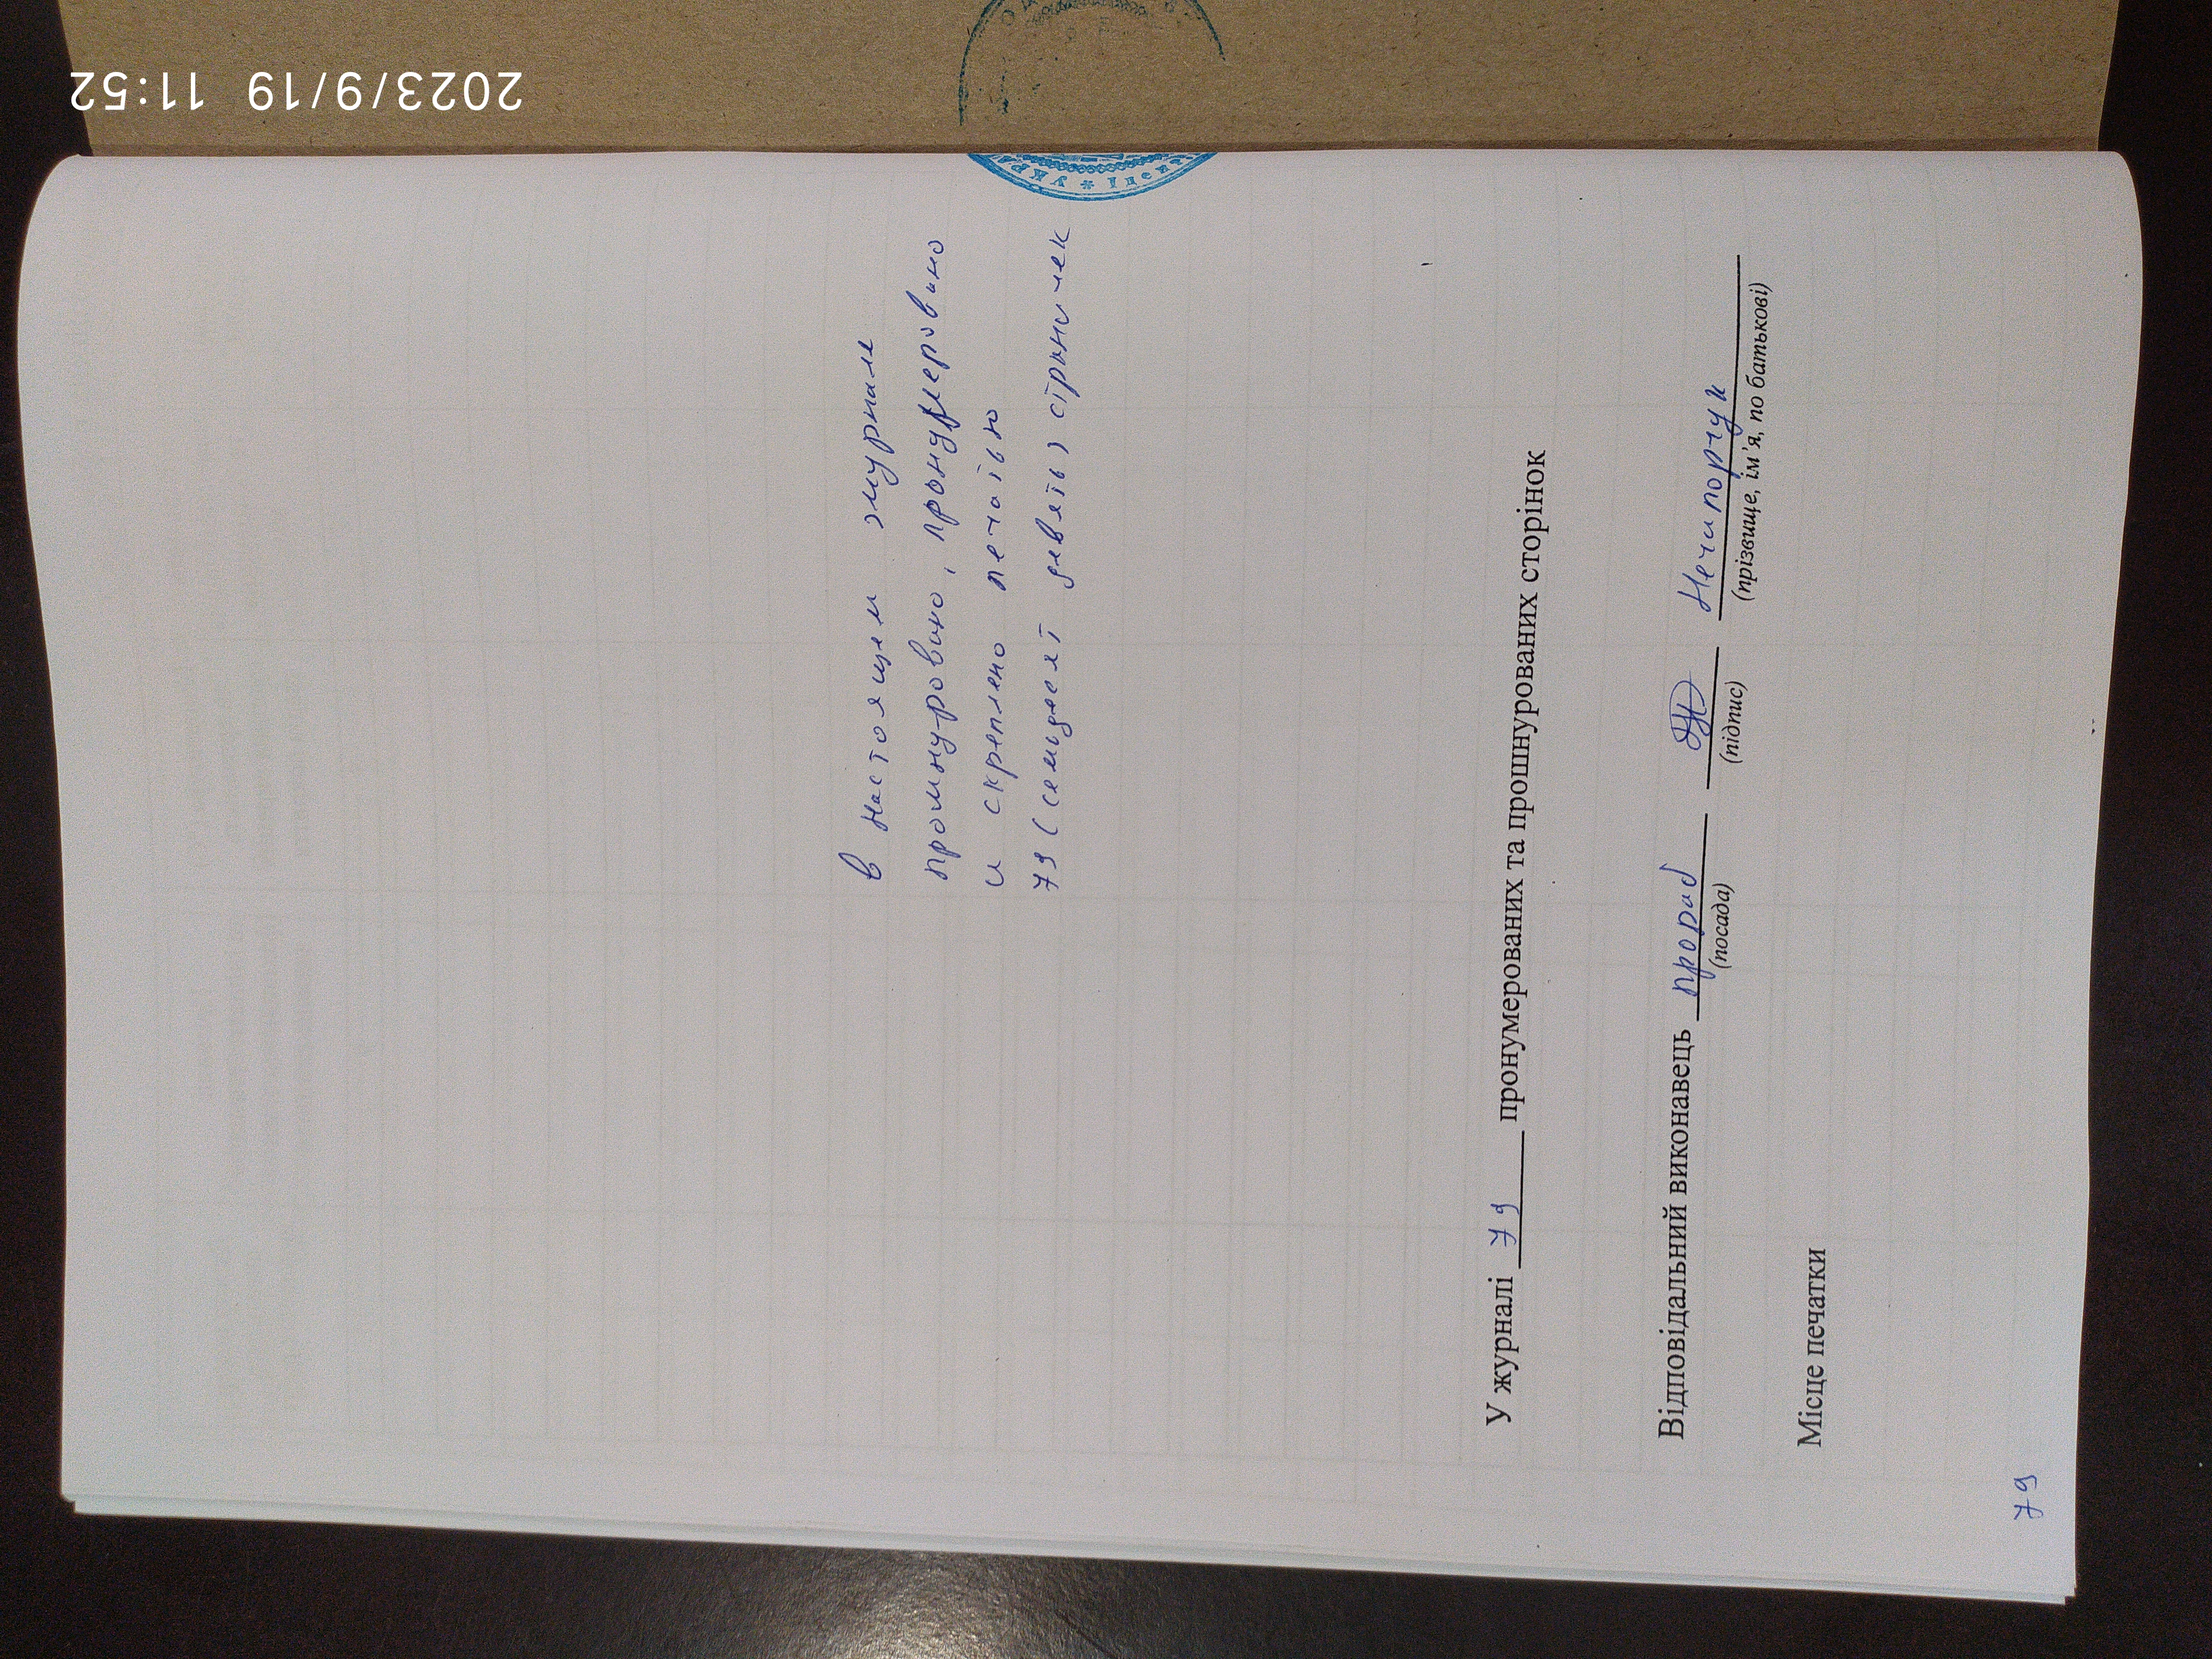 2023/9/19 11:52
в настоящем журнале
прошнуровано, пронумеровано
и скреплено печатью
79 (семьдесят девять) страничек
У журналі 79 пронумерованих та прошнурованих сторінок
Відповідальний виконавець прораб Нечипорчук
(посада) (підпис) (прізвище, ім'я, по батькові)
Місце печатки
79